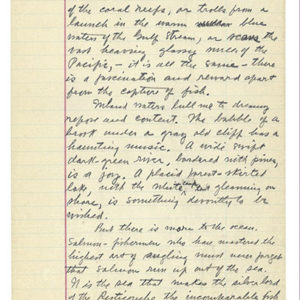 of the coral reefs, or trolls from a
launch in the warm blue
waters of the Gulf Stream, or
vast heaving glassy miles of the
Pacific, - it is all the same - there
is a fascination and reward apart
from the capture of fish.
Inland waters lull me to dreamy
repose and content. The babble of a
brook under a gray old cliff has a
haunting music. A wide swift
dark-green river, bordered with pines,
is a joy. A placid forest-skirted
lake, with the white camp gleaming on
shore, is something devoutly to be
wished.
But there is more to the ocean.
Salmon-fishermen who has mastered the
highest art of angling must never forget
that salmon run up out of the sea.
It is the sea that makes the silver lord
of the Restigouche the incomparable fish